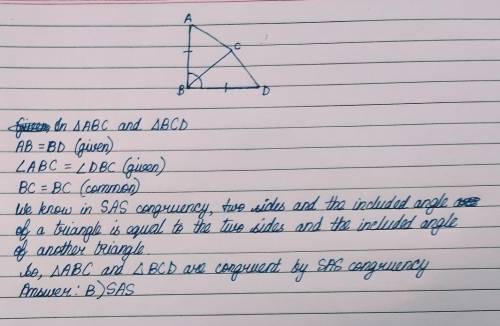 A
C
B
D
In △ABC and △BCD
AB = BD (given)
∠ABC = ∠DBC (given)
BC = BC (common)
We know in SAS congruency, two sides and the included angle
of a triangle is equal to the two sides and the included angle
of another triangle
So, △ABC and △BCD are congruent by SAS congruency
Answer: B) SAS